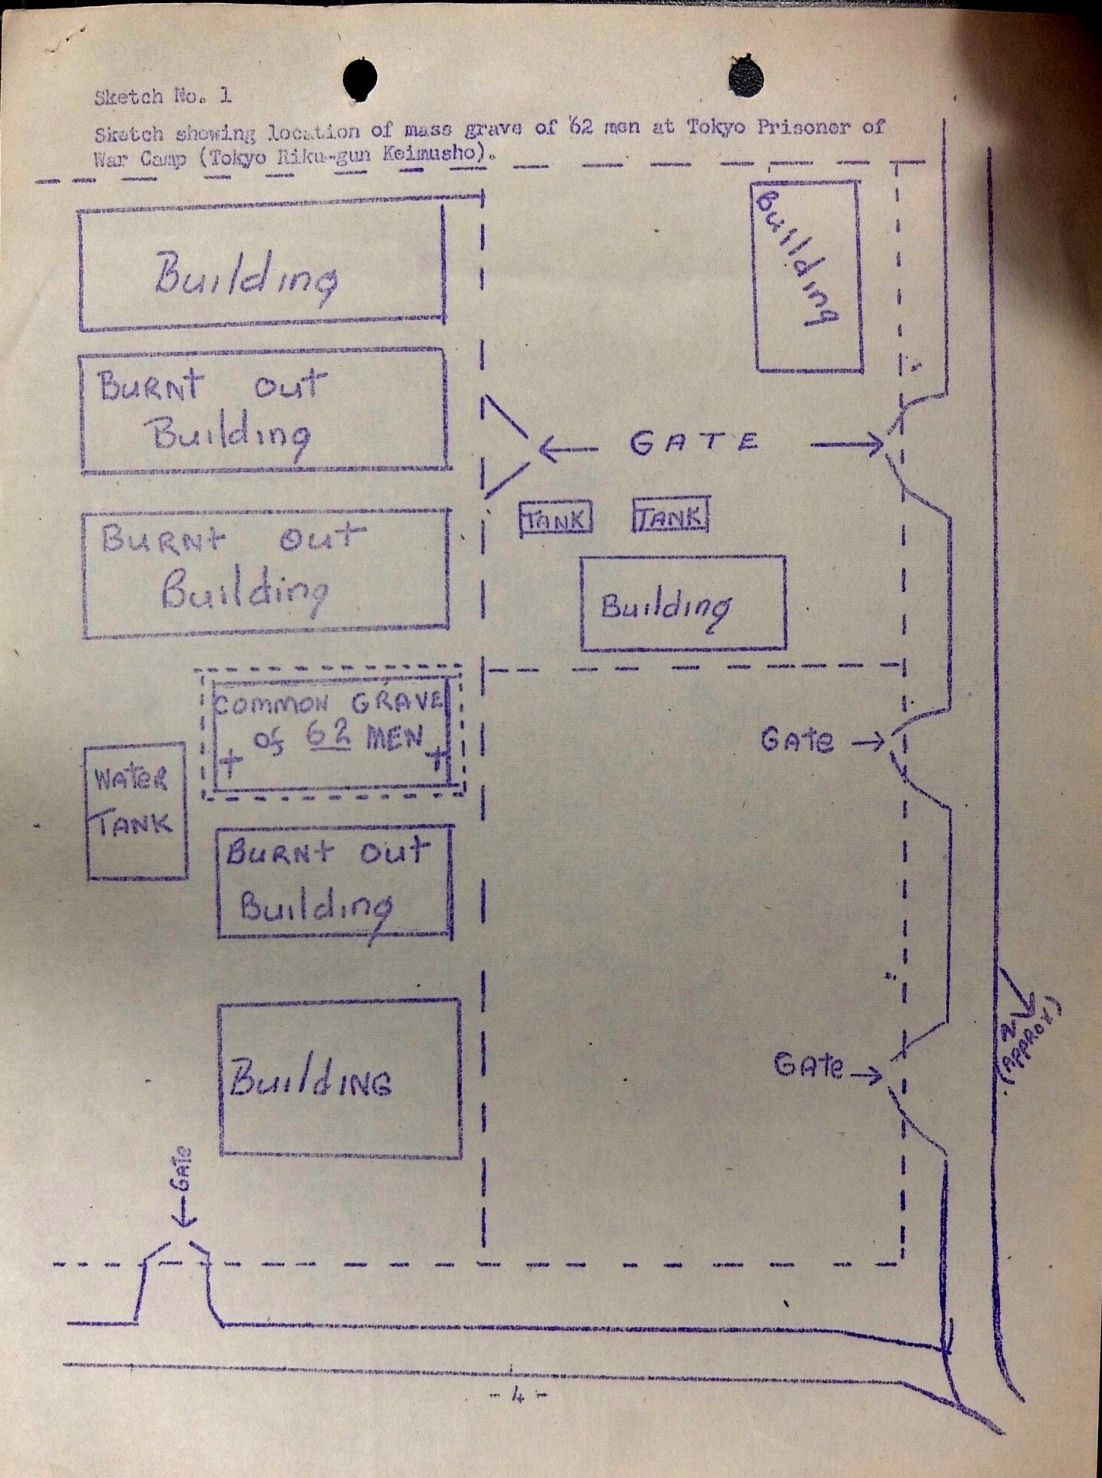 Sketch No. 1
Sketch showing location of mass grave of 62 men at Tokyo Prisoner of
War Camp (Tokyo Riku-gun Keimusho).
Building
Building
BURNT OUT
Building
← GATE →
TANK
TANK
BURNT OUT
Building
Building
COMMON GRAVE
of 62 MEN
GATE →
WATER
TANK
BURNT OUT
Building
(APPROX)
GATE →
BuildING
← GATE
- 4 -